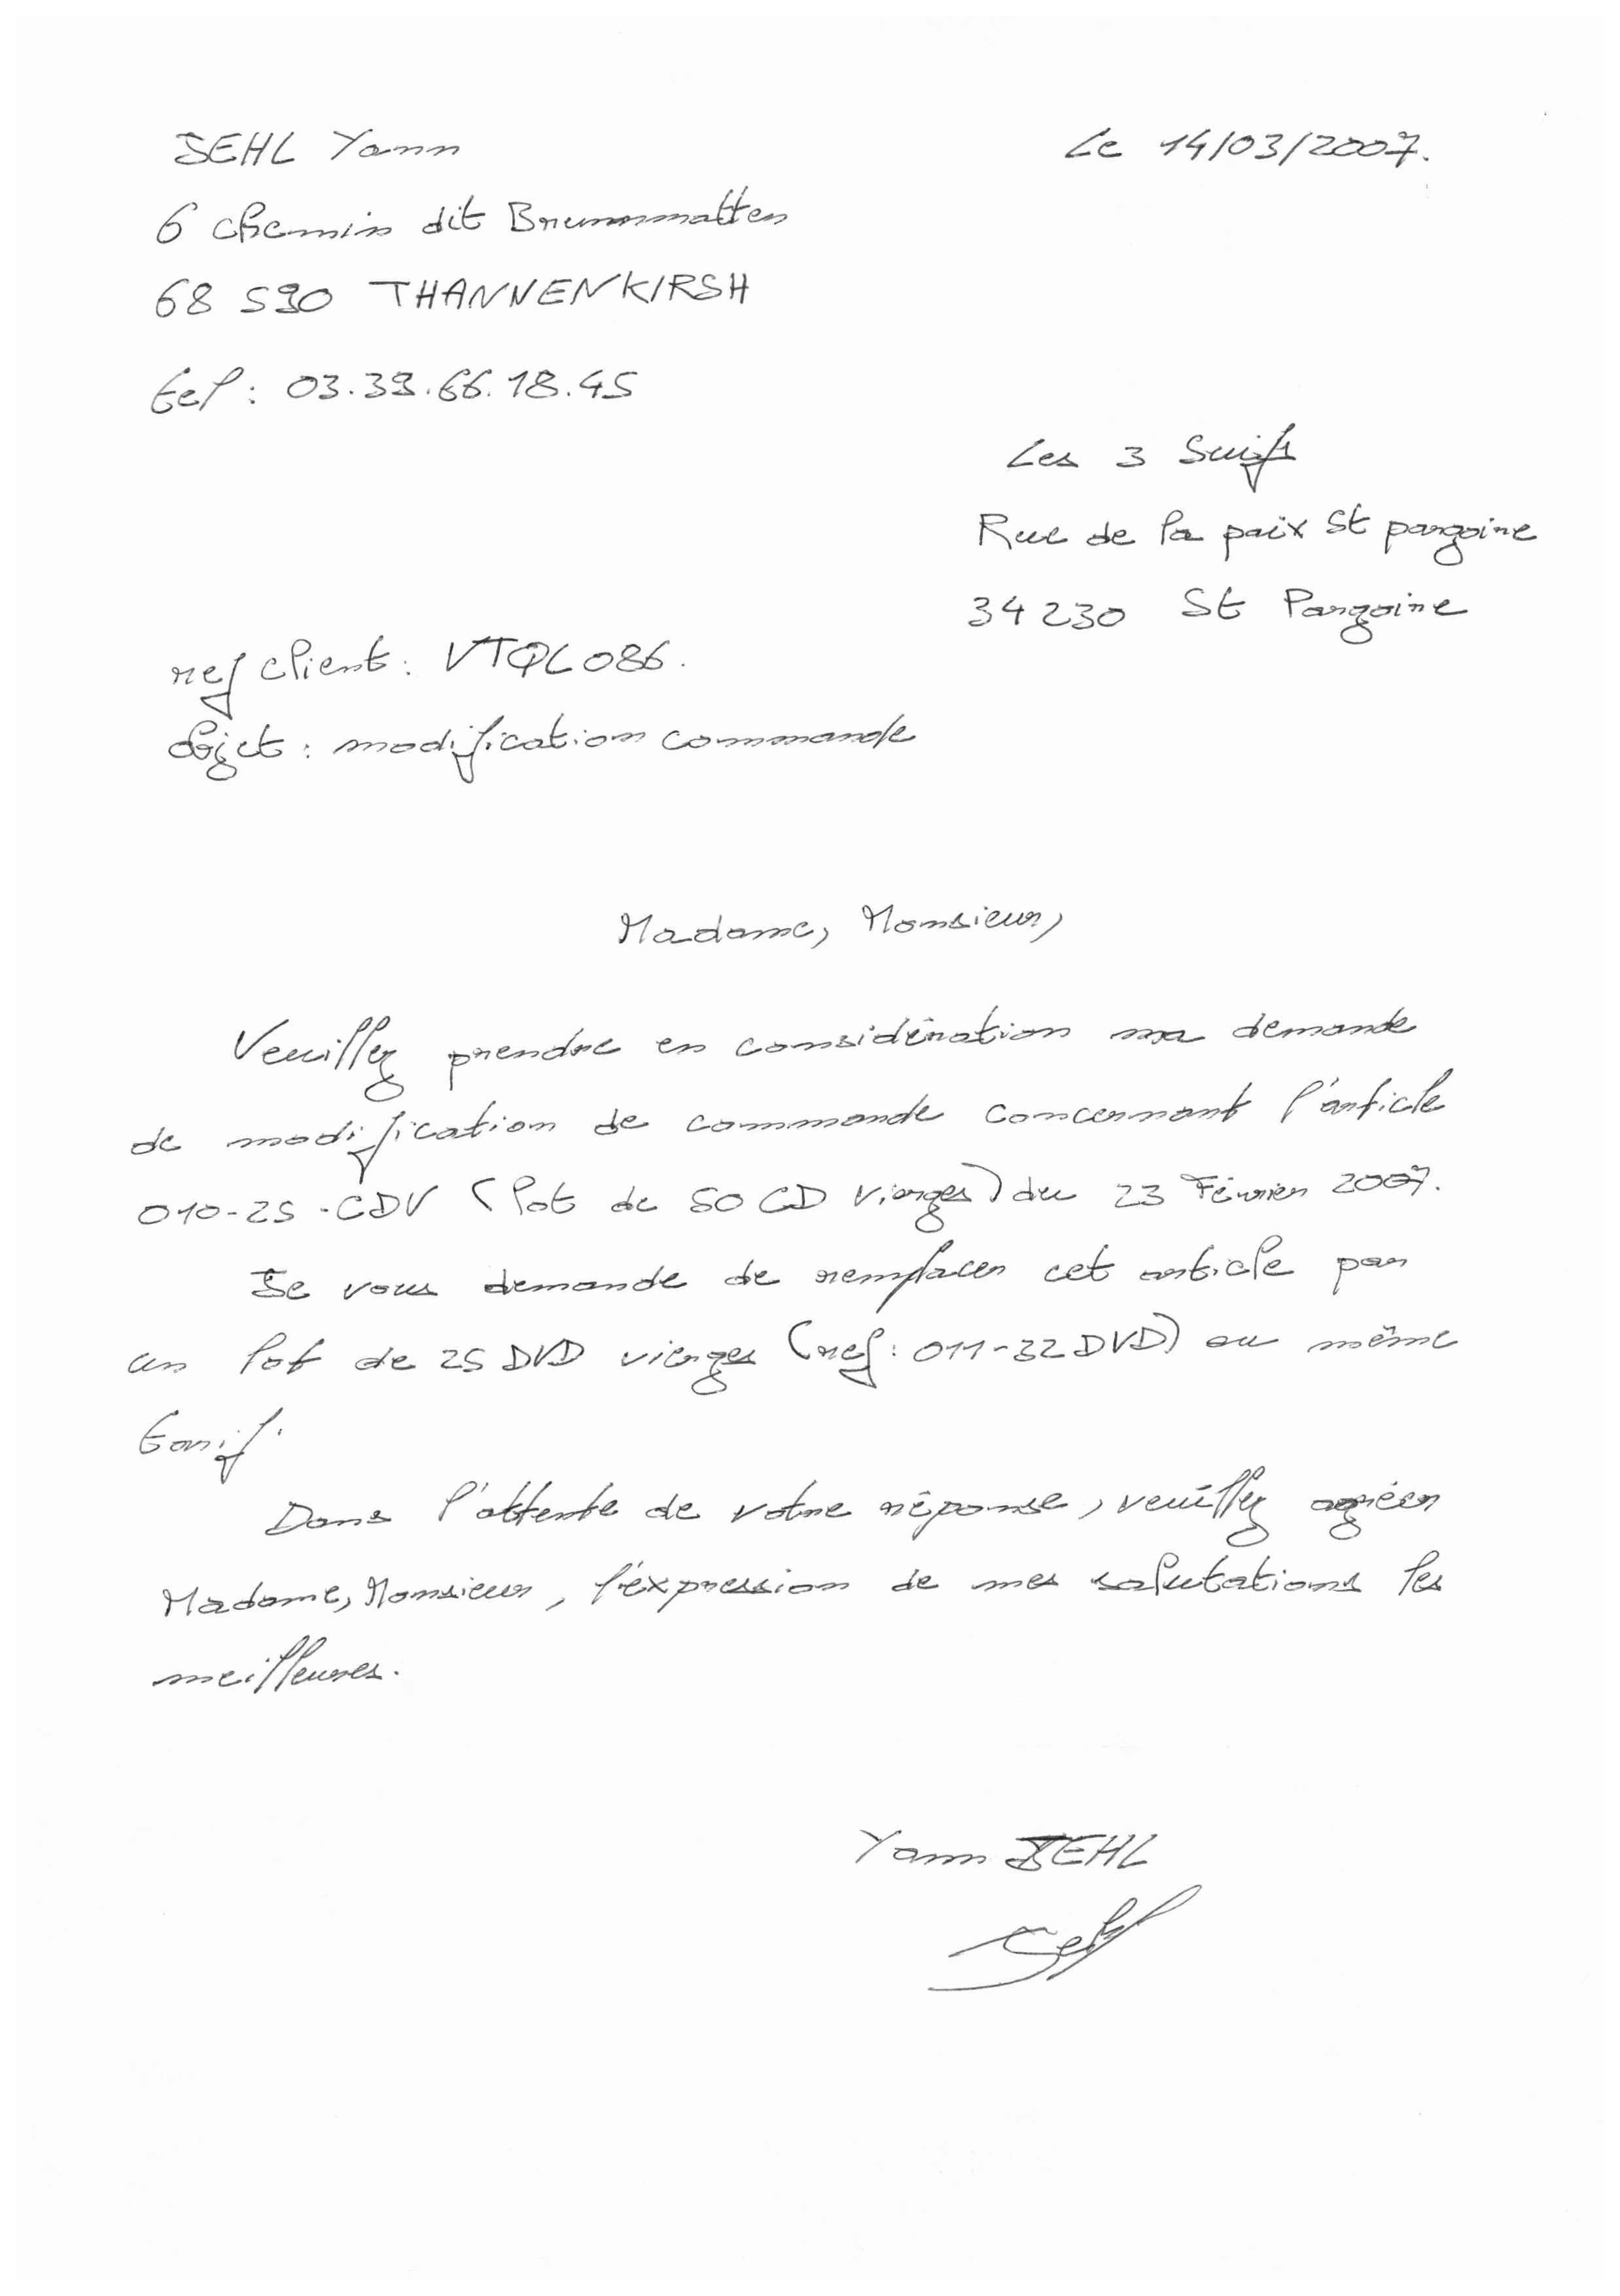 JEHL Yann
Le 14/03/2007.
6 chemin dit Brunnmatten
68 590 THANNENKIRSH
tel : 03.39.66.18.45
Les 3 Suifs
Rue de la paix St pargoire
34 230 St Pargoire
ref client : VTQL086.
Objet : modification commande
Madame, Monsieur,
Veuillez prendre en considération ma demande
de modification de commande concernant l'article
010-25-CDV (lot de 50 CD vierges) du 23 Février 2007.
Je vous demande de remplacer cet article par
un lot de 25 DVD vierges (ref : 011-32DVD) au même
tarif.
Dans l'attente de votre réponse, veuillez agréer
Madame, Monsieur, l'expression de mes salutations les
meilleures.
Yann JEHL
Jehl